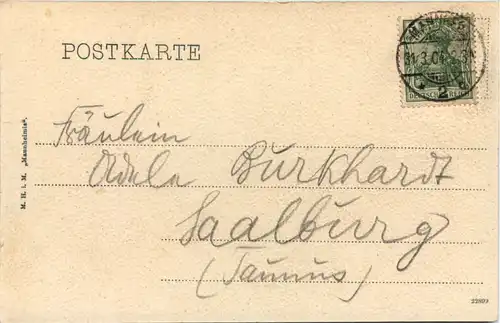 POSTKARTE
MANNHEIM
31.3.04
2
Fräulein
Adele Burkhardt
Saalburg
(Taunus)
M. H. i. M. „Mannheimia".
22699